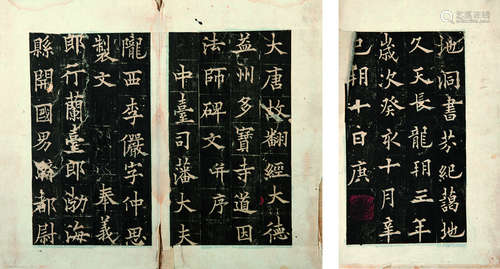 大唐故翻經大德
益州多寶寺道因
法師碑文并序
中臺司藩大夫
隴西李儼字仲思
製文 奉義
郎行蘭臺郎渤海
縣開國男騎都尉
地洞書芬紀藹地
久天長龍朔三年
歲次癸亥十月辛
巳朔十日庚